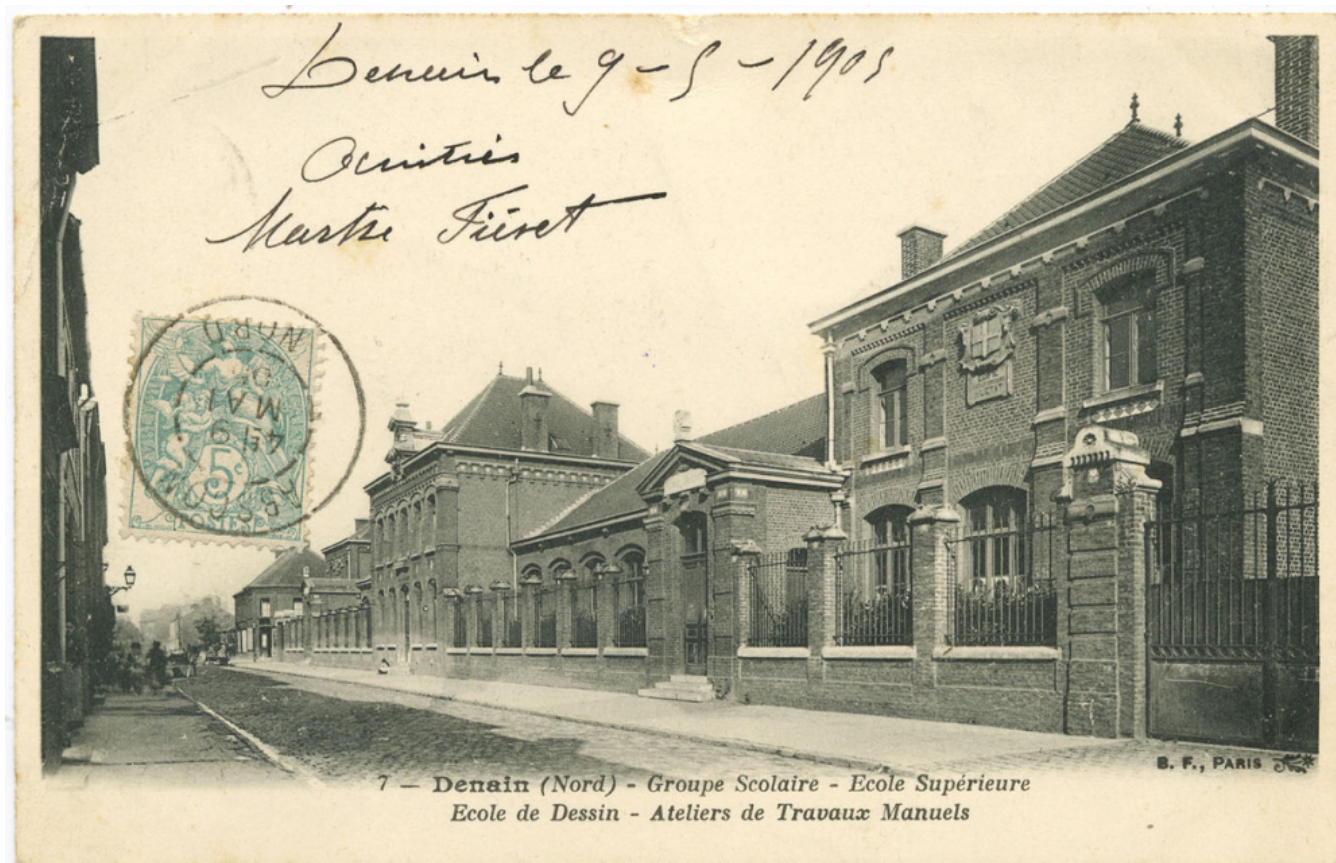 Denain le 9-5-1905
Amitiés
Marthe Fiévet
NORD
05
MAI
9
5c
POSTES
7 — Denain (Nord) - Groupe Scolaire - Ecole Supérieure
Ecole de Dessin - Ateliers de Travaux Manuels
B. F., PARIS